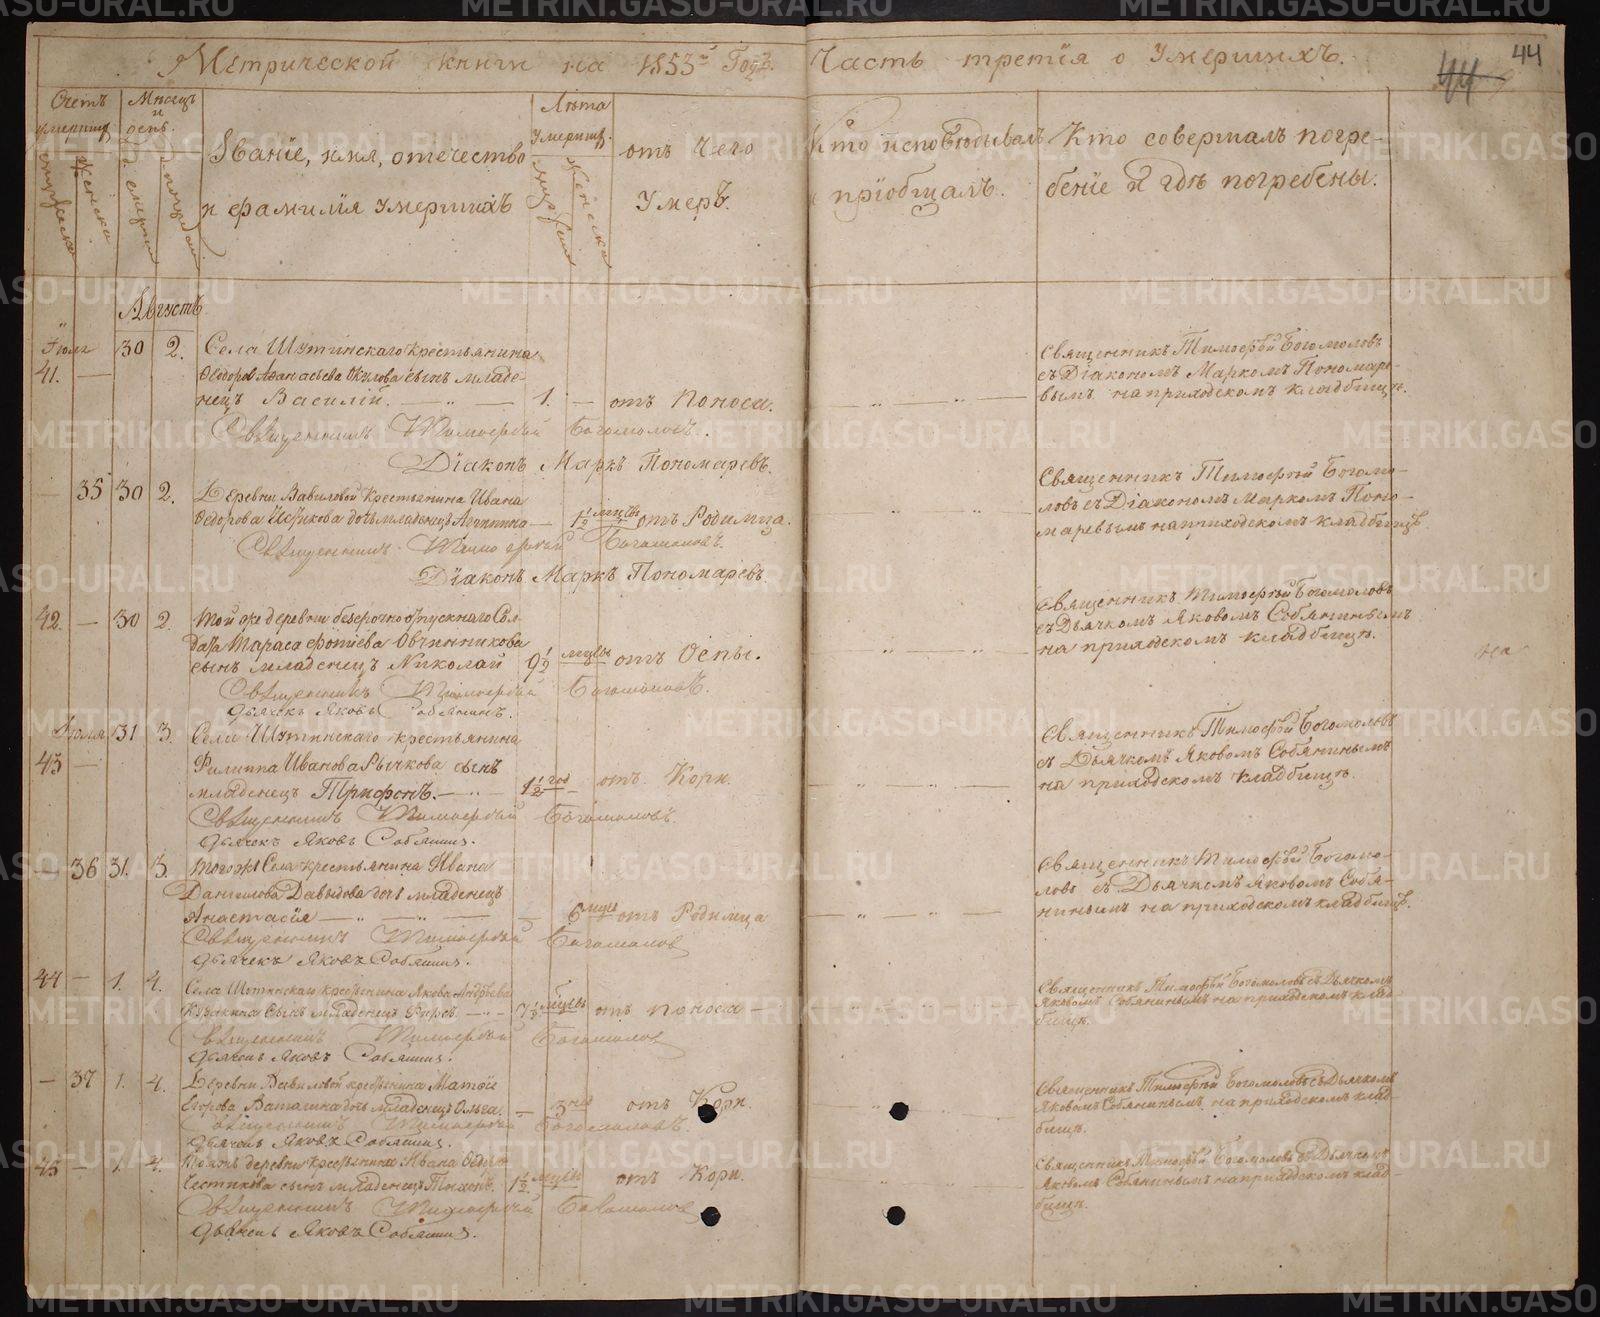 Метрической книги на 1853й Годъ. Часть третія о Умершихъ.
44
44
Счетъ умершихъ.
Мужеска
Женска
Мѣсяцъ и день.
смерти
погребенія
Званіе, имя, отечество
и фамилія умершихъ
Лѣта Умершихъ.
Мужеска
Женска
отъ Чего
Умеръ.
Кто исповѣдывалъ
и пріобщалъ.
Кто совершалъ погре-
беніе и гдѣ погребены.
Августъ
Іюля 30 2. Села Шутинскаго крестьянина Священникъ Тимофѣй Богомоловъ
41. — Ѳедора Аѳанасьева Окулова сынъ младе- съ Діакономъ Маркомъ Пономаре-
нецъ Василій. — 1. — отъ Поноса. вымъ на приходскомъ кладбищѣ.
Священникъ Тимофей Богомоловъ.
Діаконъ Маркъ Пономаревъ.
— 35 30 2. Деревни Вавиловой Крестьянина Ивана Священникъ Тимофѣй Богомо-
Ѳедорова дочь младенецъ — 1½ мцы отъ Родимца. ловъ съ Діакономъ Маркомъ Поно-
маревымъ на приходскомъ кладбищѣ.
Священникъ Тимофей Богомоловъ.
Діаконъ Маркъ Пономаревъ.
42. — 30 2. Той же деревни безсрочно отпускнаго Сол- Священникъ Тимофѣй Богомоловъ
дата Тараса Фотіева Овчинникова съ Дьячкомъ Яковомъ Собянинымъ
сынъ младенецъ Николай 9½ мцы отъ Оспы. на приходскомъ кладбищѣ.
Священникъ Тимофей Богомоловъ.
Дьячекъ Яковъ Собянинъ.
на
Іюля 31 3. Села Шутинскаго крестьянина Священникъ Тимофѣй Богомоловъ
43 — Филиппа Иванова Рычкова сынъ съ Дьячкомъ Яковомъ Собянинымъ
младенецъ Трифонъ. — 1½ год — отъ Кори. на приходскомъ кладбищѣ.
Священникъ Тимофей Богомоловъ.
Дьячокъ Яковъ Собянинъ.
— 36 31. 3. Того же Села крестьянина Ивана Священникъ Тимофѣй Богомо-
Данилова Давыдова дочь младенецъ ловъ съ Дьячкомъ Яковомъ Собя-
Анастасія — — 6 мцы отъ Родимца нинымъ на приходскомъ кладбищѣ.
Священникъ Тимофей Богомолов
Дьячекъ Яковъ Собянинъ.
44 — 1. 4. Села Шутинскаго крестьянина Якова Андреева Священникъ Тимофѣй Богомоловъ съ Дьячкомъ
сынъ младенецъ — 7½ мцы отъ Поноса — Яковомъ Собянинымъ на приходскомъ клад-
бищѣ.
Священникъ Тимофей Богомолов
Дьячекъ Яковъ Собянинъ.
— 37 1. 4. Деревни Вавиловой крестьянина Матѳія Священникъ Тимофѣй Богомоловъ съ Дьячкомъ
Егорова Ваталина дочь младенецъ Ольга. — 3 отъ Кори. Яковомъ Собянинымъ на приходскомъ клад-
бищѣ.
Священникъ Тимофей Богомоловъ.
Дьячекъ Яковъ Собянинъ.
45 — 1. 4. Тояже деревни крестьянина Ивана Ѳедоро- Священникъ Тимофѣй Богомоловъ съ Дьячкомъ
сынъ младенецъ Тихонъ. 1½ мцы отъ Кори. Яковомъ Собянинымъ на приходскомъ клад-
бищѣ.
Священникъ Тимофей Богомолов
Дьячекъ Яковъ Собянинъ.
METRIKI.GASO-URAL.RU